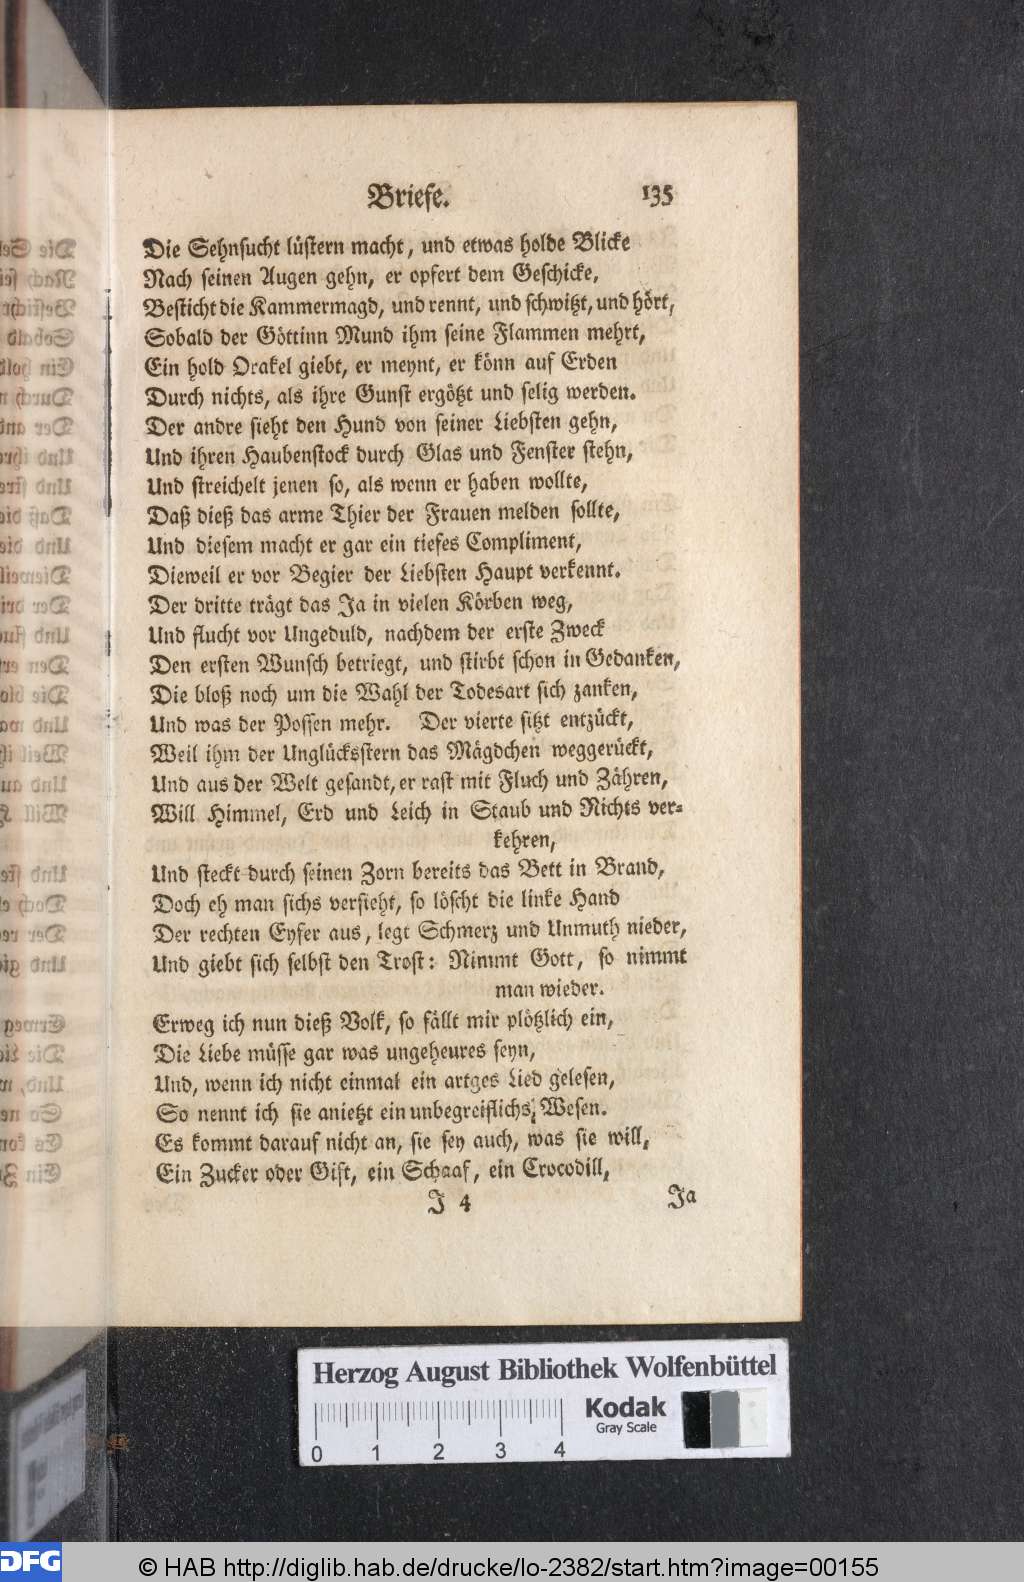 Briefe. 135
Die Sehnsucht lüstern macht, und etwas holde Blicke
Nach seinen Augen gehn, er opfert dem Geschicke,
Besticht die Kammermagd, und rennt, und schwitzt, und hört,
Sobald der Göttinn Mund ihm seine Flammen mehrt,
Ein hold Orakel giebt, er meynt, er könn auf Erden
Durch nichts, als ihre Gunst ergötzt und selig werden.
Der andre sieht den Hund von seiner Liebsten gehn,
Und ihren Haubenstock durch Glas und Fenster stehn,
Und streichelt jenen so, als wenn er haben wollte,
Daß dieß das arme Thier der Frauen melden sollte,
Und diesem macht er gar ein tiefes Compliment,
Dieweil er vor Begier der Liebsten Haupt verkennt.
Der dritte trägt das Ja in vielen Körben weg,
Und flucht vor Ungeduld, nachdem der erste Zweck
Den ersten Wunsch betriegt, und stirbt schon in Gedanken,
Die bloß noch um die Wahl der Todesart sich zanken,
Und was der Possen mehr. Der vierte sitzt entzückt,
Weil ihm der Unglücksstern das Mägdchen weggerückt,
Und aus der Welt gesandt, er rast mit Fluch und Zähren,
Will Himmel, Erd und Leich in Staub und Nichts ver-
kehren,
Und steckt durch seinen Zorn bereits das Bett in Brand,
Doch eh man sichs versieht, so löscht die linke Hand
Der rechten Eyfer aus, legt Schmerz und Unmuth nieder,
Und giebt sich selbst den Trost: Nimmt Gott, so nimmt
man wieder.
Erweg ich nun dieß Volk, so fällt mir plötzlich ein,
Die Liebe müsse gar was ungeheures seyn,
Und, wenn ich nicht einmal ein artges Lied gelesen,
So nennt ich sie anietzt ein unbegreiflichs Wesen.
Es kommt darauf nicht an, sie sey auch, was sie will,
Ein Zucker oder Gift, ein Schaaf, ein Crocodill,
J 4 Ja
Herzog August Bibliothek Wolfenbüttel
Kodak
Gray Scale
0 1 2 3 4
DFG © HAB http://diglib.hab.de/drucke/lo-2382/start.htm?image=00155